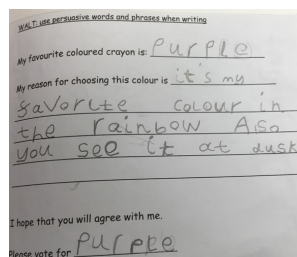 WALT: use persuasive words and phrases when writing
My favourite coloured crayon is: Purple
My reason for choosing this colour is it's my
favorite colour in
the rainbow Also
you see it at dusk
I hope that you will agree with me.
Please vote for Purple